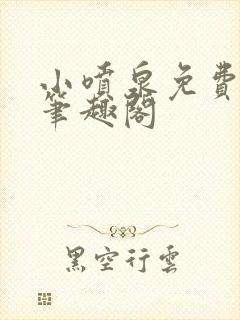 小噴泉免費
筆趣閣
黑空行雲